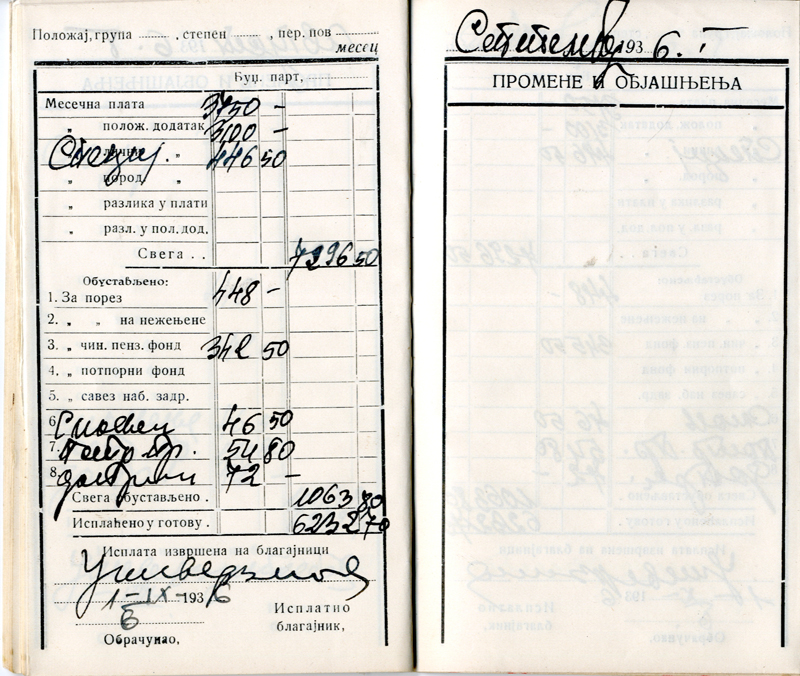 Положај, група ........ , степен ........ , пер. пов ........
месец
Буџ. парт,
Месечна плата 3750 -
„ полож. додатак 3100 -
„ лични „ 446 50
„ пород. „
„ разлика у плати
„ разл. у пол. дод.
Свега . . 7296 50
Обустављено:
1. За порез 448 -
2. „ „ на нежењене
3. „ чин. пенз. фонд 342 50
4. „ потпорни фонд
5. „ савез наб. задр.
6 46 50
7. 54 80
8. 72 -
Свега обустављено . 1063 80
Исплаћено у готову . 6232 70
Исплата извршена на благајници
Универзитета
1-IX-1936
6
Обрачунао,
Исплатио
благајник,
Септембар 1936. г
ПРОМЕНЕ И ОБЈАШЊЕЊА